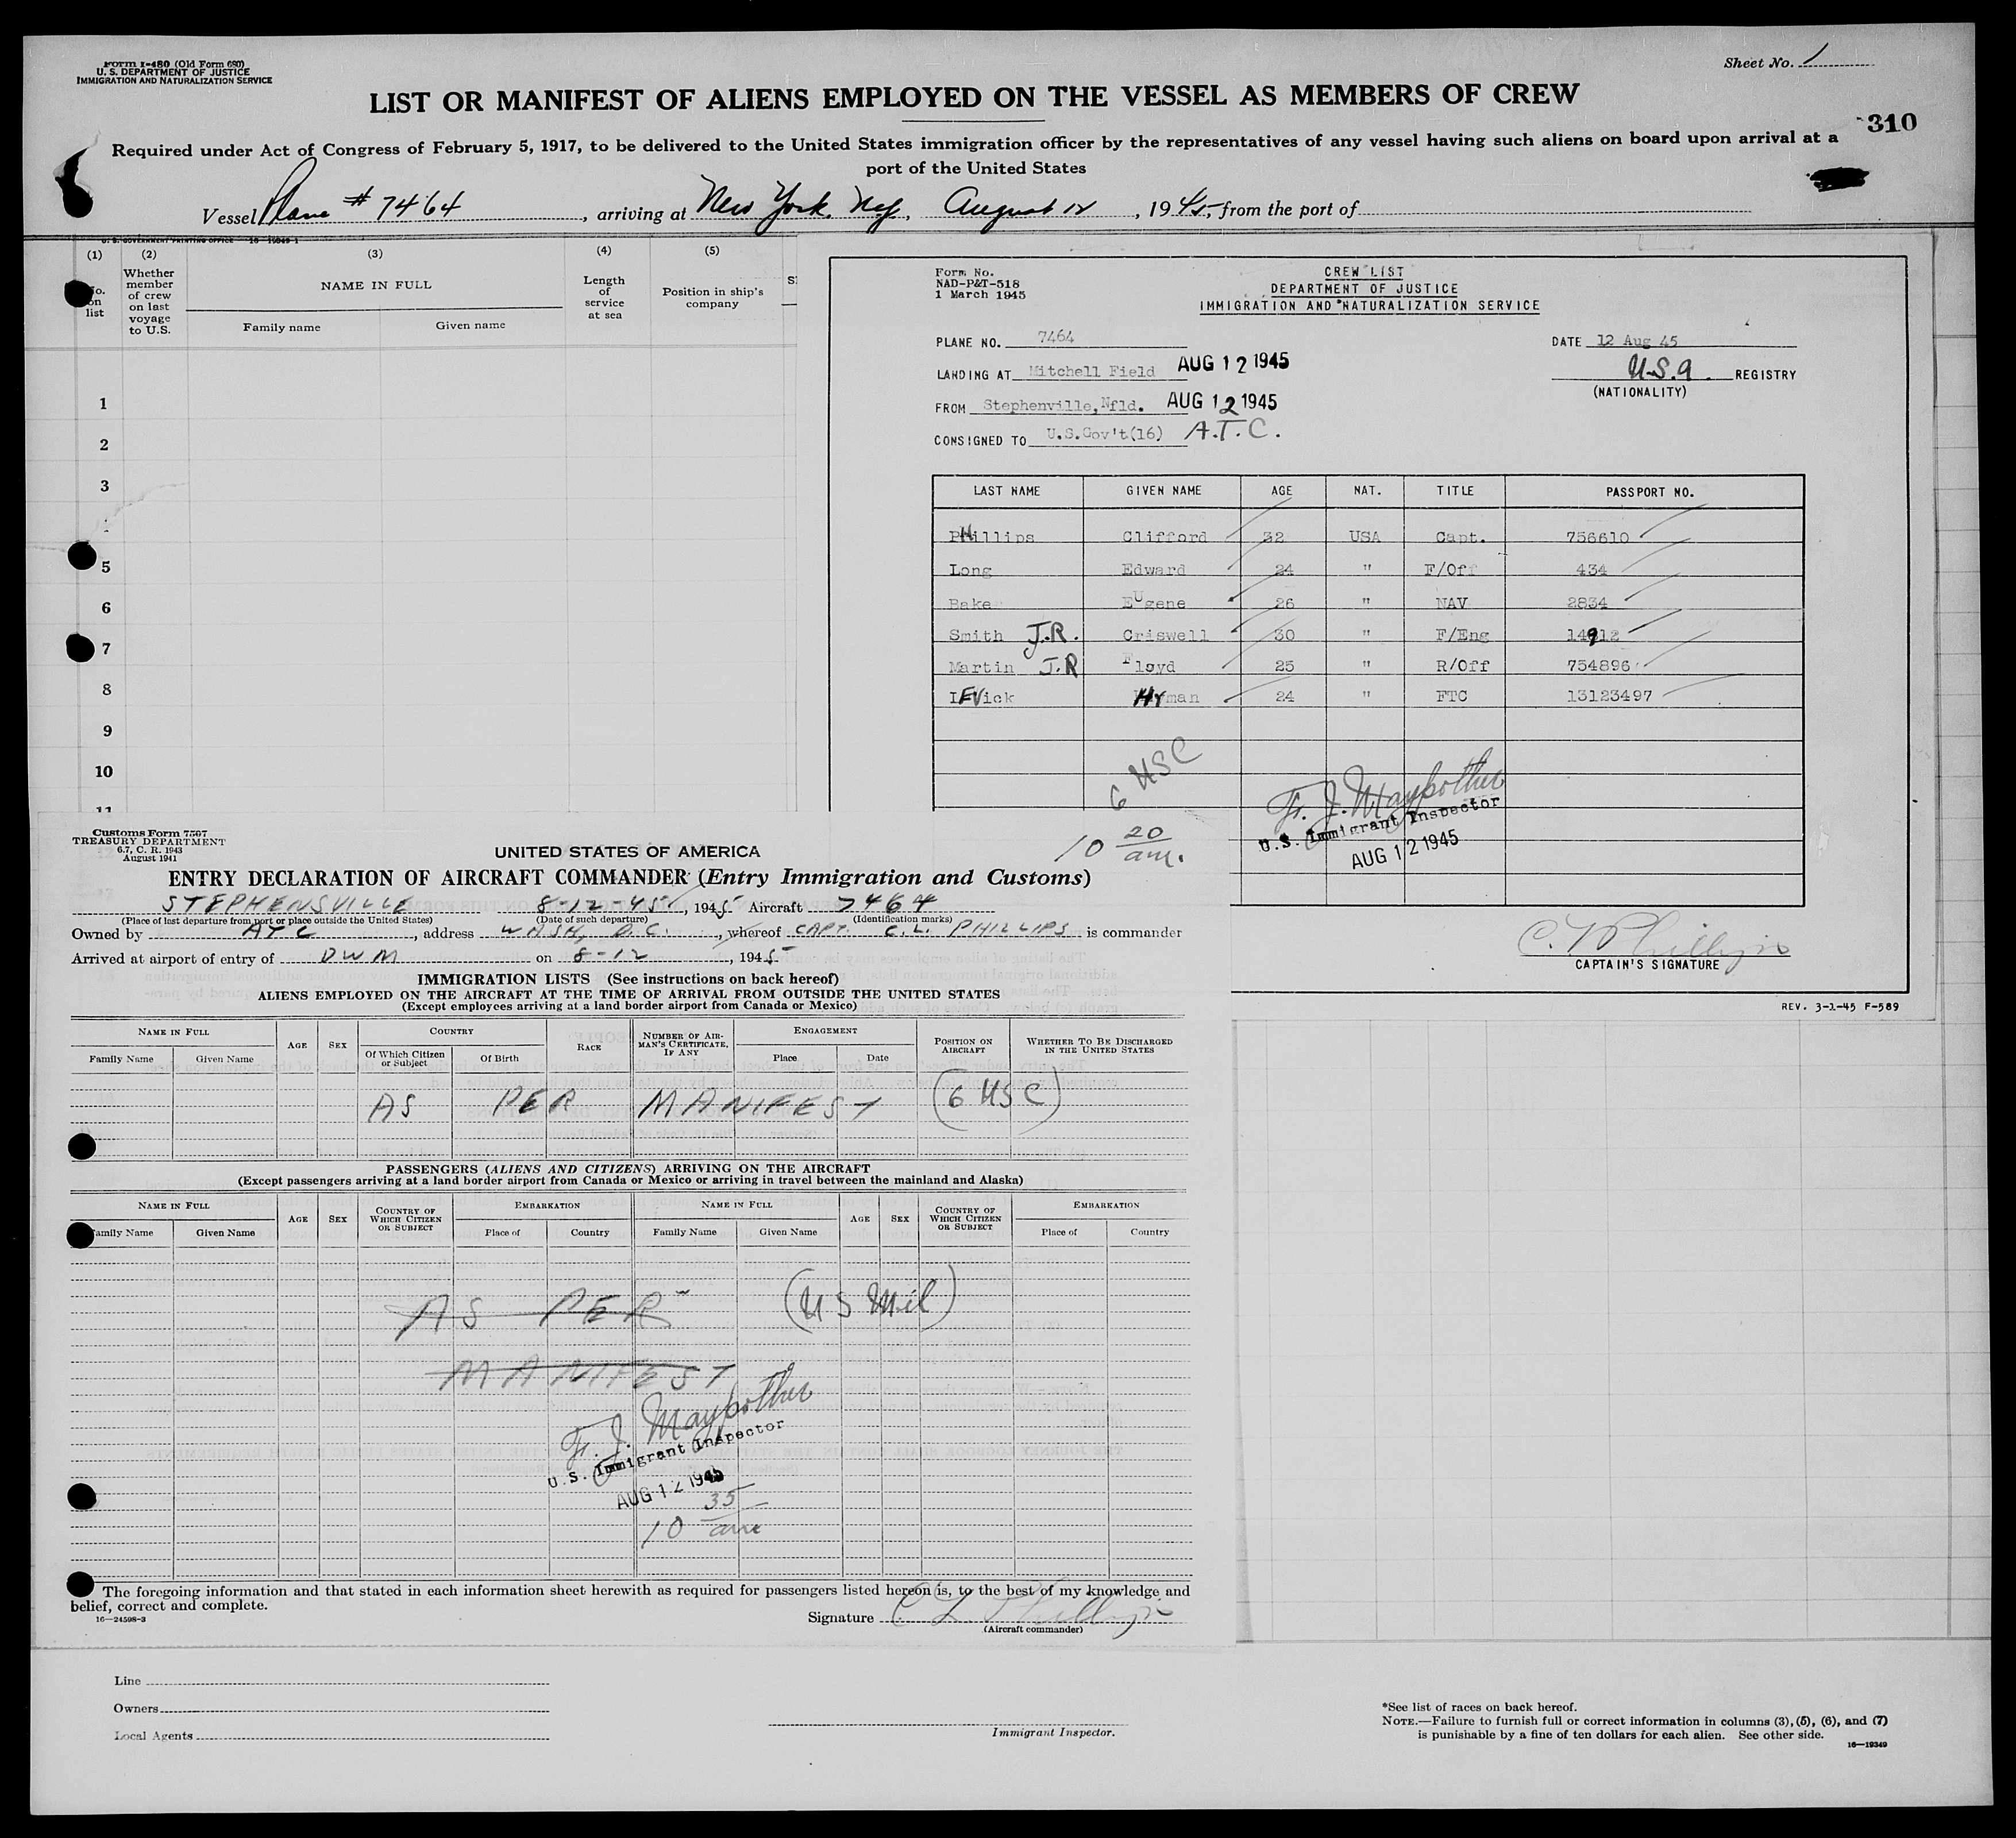 Form I-480 (Old Form 680)
U. S. DEPARTMENT OF JUSTICE
IMMIGRATION AND NATURALIZATION SERVICE
Sheet No. 1
LIST OR MANIFEST OF ALIENS EMPLOYED ON THE VESSEL AS MEMBERS OF CREW
310
Required under Act of Congress of February 5, 1917, to be delivered to the United States immigration officer by the representatives of any vessel having such aliens on board upon arrival at a
port of the United States
Vessel Plane # 7464, arriving at New York, N.Y., August 12, 1945, from the port of
(1) (2) (3) (4) (5)
No. on list
Whether member of crew on last voyage to U.S.
NAME IN FULL
Family name Given name
Length of service at sea
Position in ship's company
1
2
3
5
6
7
8
9
10
11
Form No.
NAD-P&T-518
1 March 1945
CREW LIST
DEPARTMENT OF JUSTICE
IMMIGRATION AND NATURALIZATION SERVICE
PLANE NO. 7464
DATE 12 Aug 45
LANDING AT Mitchell Field AUG 12 1945
U.S.A. REGISTRY
(NATIONALITY)
FROM Stephenville, Nfld. AUG 12 1945
CONSIGNED TO U.S.Gov't(16) A.T.C.
LAST NAME GIVEN NAME AGE NAT. TITLE PASSPORT NO.
PHillips Clifford 32 USA Capt. 756610
Long Edward 24 " F/Off 434
Bake EUgene 26 " NAV 2834
Smith J.R. Criswell 30 " F/Eng 14912
Martin J.R Floyd 25 " R/Off 754896
lEVick Hyman 24 " FTC 13123497
6 USC
10 20 am.
F. J. Maypother
U.S. Immigrant Inspector
AUG 12 1945
C. L. Phillips
CAPTAIN'S SIGNATURE
REV. 3-1-45 F-589
Customs Form 7507
TREASURY DEPARTMENT
6.7, C. R. 1943
August 1941
UNITED STATES OF AMERICA
ENTRY DECLARATION OF AIRCRAFT COMMANDER (Entry Immigration and Customs)
STEPHENSVILLE 8-12-45, 1945 Aircraft 7464
(Place of last departure from port or place outside the United States) (Date of such departure) (Identification marks)
Owned by ATC, address WASH, D.C., whereof CAPT. C.L. PHILLIPS is commander
Arrived at airport of entry of DWM on 8-12, 1945
IMMIGRATION LISTS (See instructions on back hereof)
ALIENS EMPLOYED ON THE AIRCRAFT AT THE TIME OF ARRIVAL FROM OUTSIDE THE UNITED STATES
(Except employees arriving at a land border airport from Canada or Mexico)
NAME IN FULL AGE SEX COUNTRY RACE NUMBER OF AIRMAN'S CERTIFICATE, IF ANY ENGAGEMENT POSITION ON AIRCRAFT WHETHER TO BE DISCHARGED IN THE UNITED STATES
Family Name Given Name Of Which Citizen or Subject Of Birth Place Date
AS PER MANIFEST (6 USC)
PASSENGERS (ALIENS AND CITIZENS) ARRIVING ON THE AIRCRAFT
(Except passengers arriving at a land border airport from Canada or Mexico or arriving in travel between the mainland and Alaska)
NAME IN FULL AGE SEX COUNTRY OF WHICH CITIZEN OR SUBJECT EMBARKATION NAME IN FULL AGE SEX COUNTRY OF WHICH CITIZEN OR SUBJECT EMBARKATION
Family Name Given Name Place of Country Family Name Given Name Place of Country
AS PER (US Mil)
MANIFEST
F. J. Maypother
U.S. Immigrant Inspector
AUG 12 1945
10 35 am
The foregoing information and that stated in each information sheet herewith as required for passengers listed hereon is, to the best of my knowledge and
belief, correct and complete.
16—24598-3
Signature C L Phillips
(Aircraft commander)
Line
Owners
Local Agents
Immigrant Inspector.
*See list of races on back hereof.
NOTE.—Failure to furnish full or correct information in columns (3), (5), (6), and (7)
is punishable by a fine of ten dollars for each alien. See other side.
16—19349